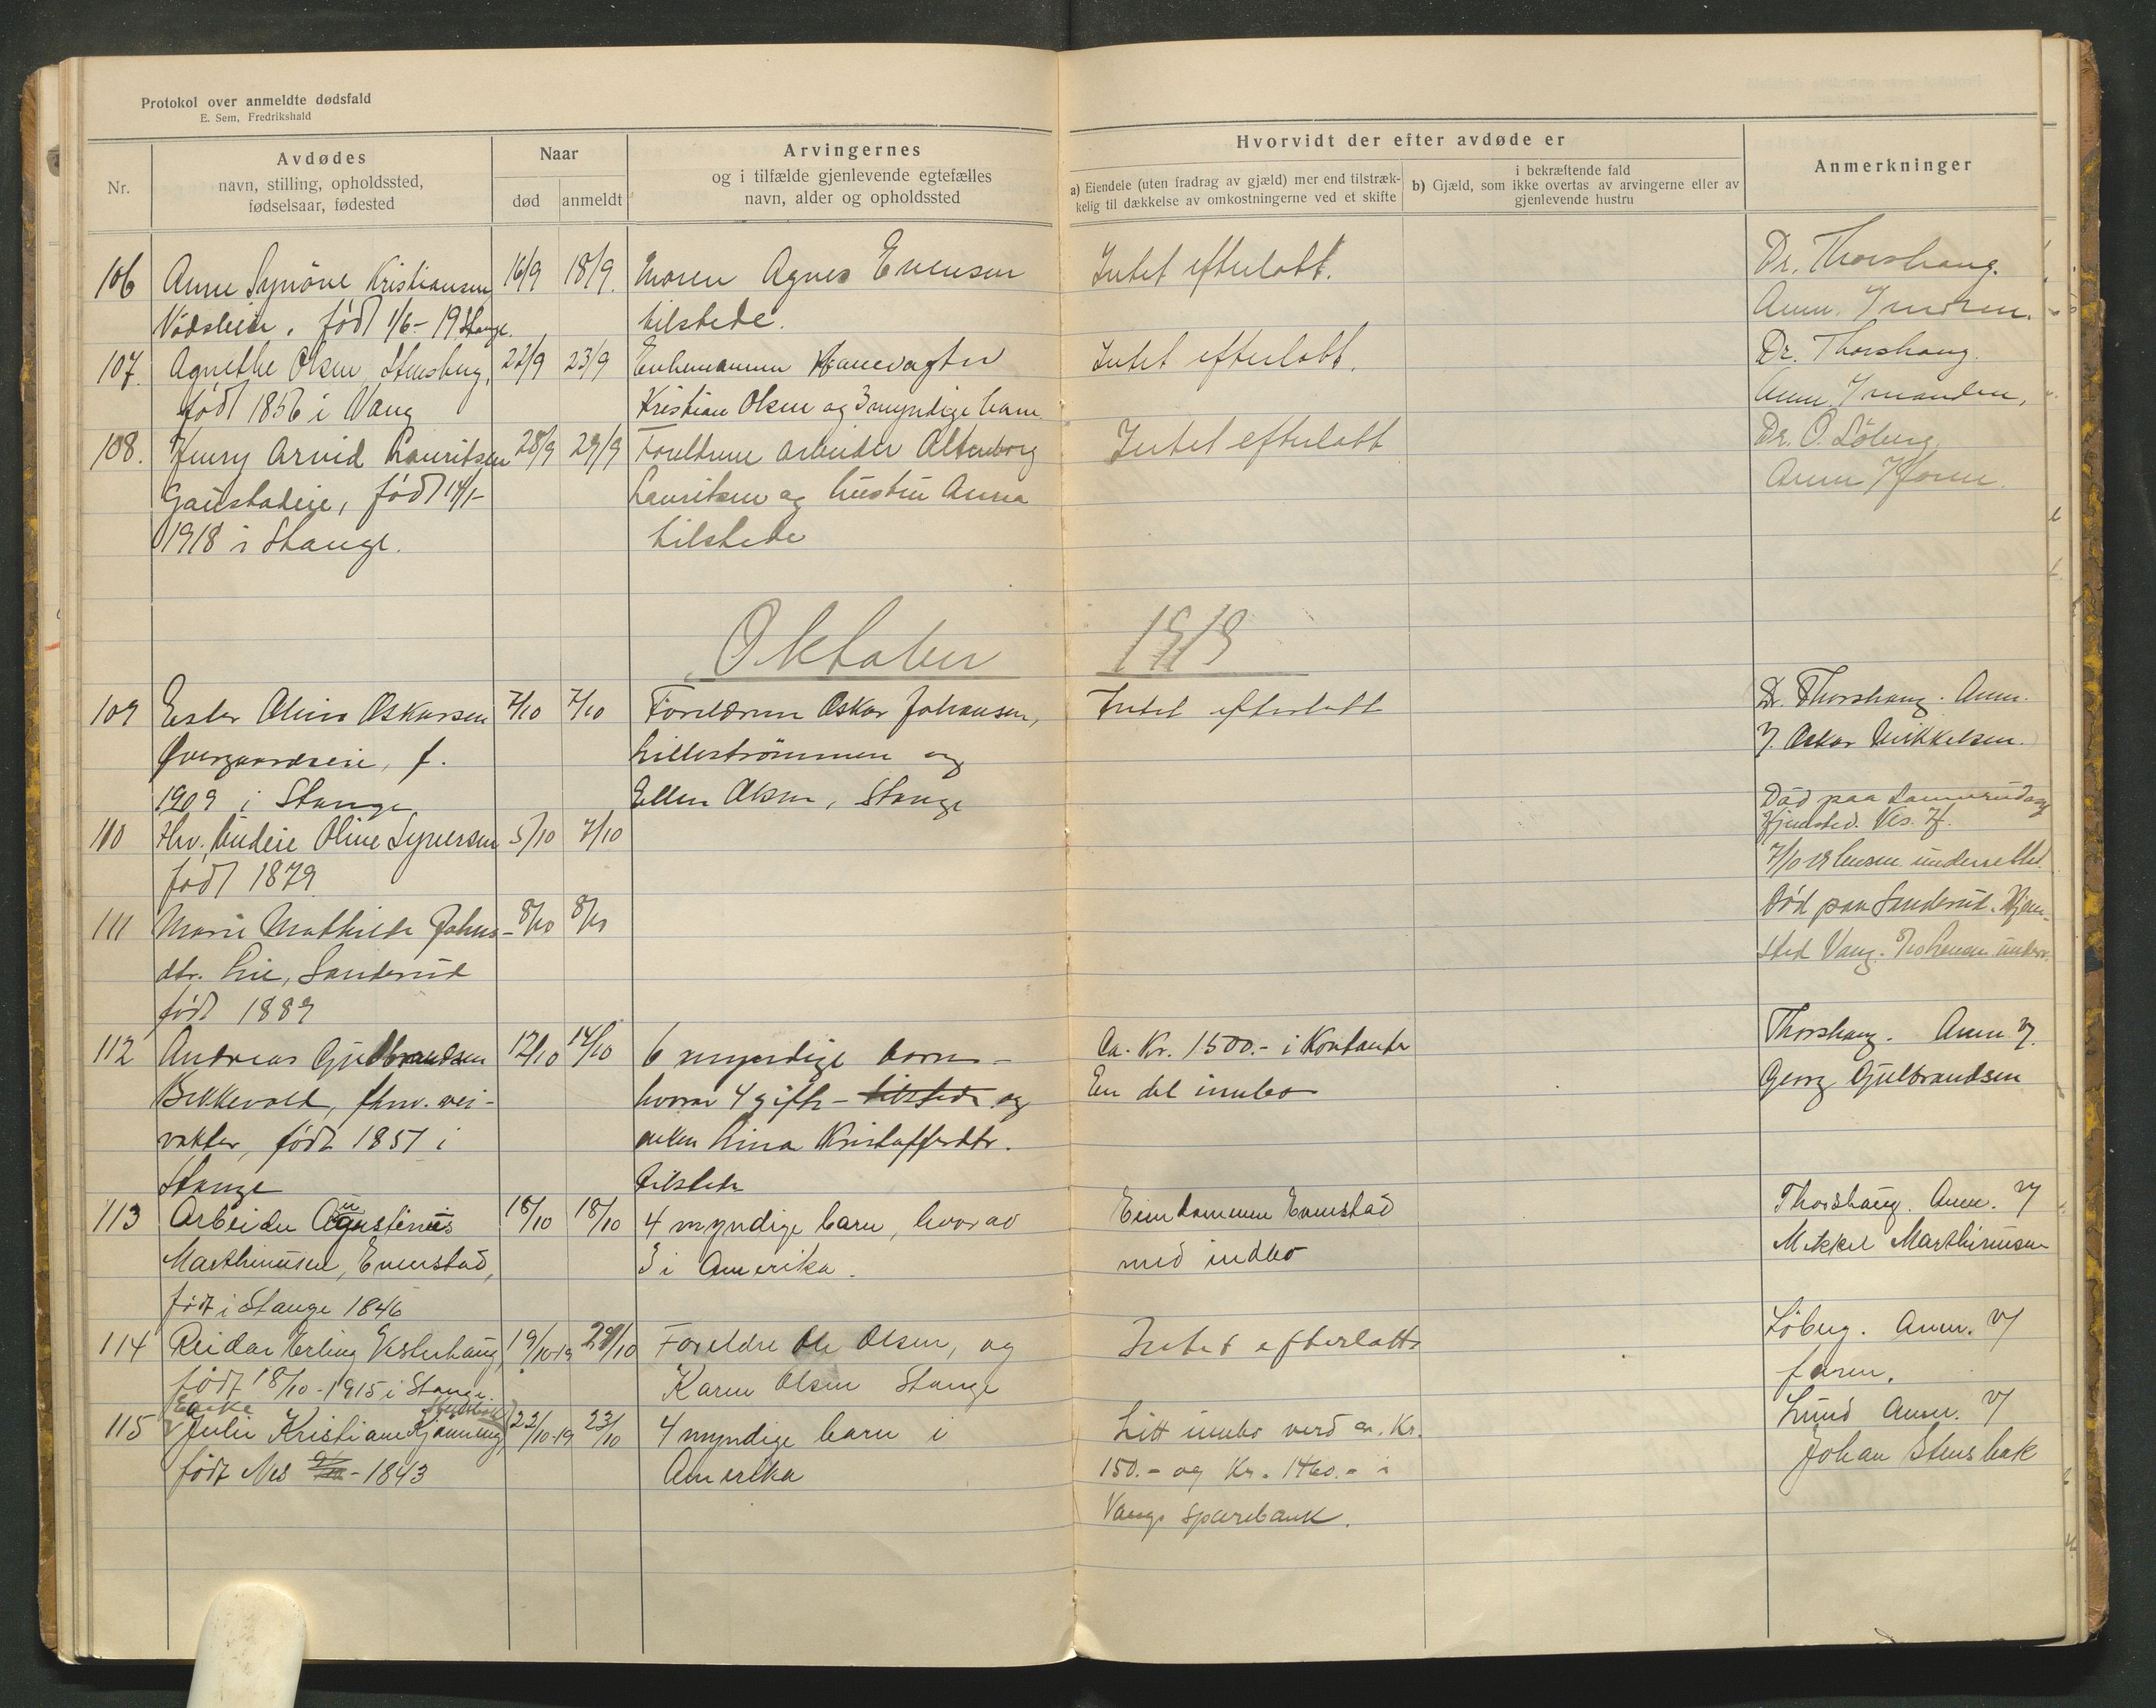 Protokol over anmeldte dødsfald
E. Sem, Fredrikshald
Nr.
Avdødes
navn, stilling, opholdssted,
fødselsaar, fødested
Naar
død
anmeldt
Arvingernes
og i tilfælde gjenlevende egtefælles
navn, alder og opholdssted
Hvorvidt der efter avdøde er
a) Eiendele (uten fradrag av gjæld) mer end tilstræk-
kelig til dækkelse av omkostningerne ved et skifte
i bekræftende fald
b) Gjæld, som ikke overtas av arvingerne eller av
gjenlevende hustru
Anmerkninger
106 Anne Synöve Kristiansen 16/9 18/9. Moren Agnes Evensen Intet efterlatt. Dr. Thorshaug.
født 1/6-19 Stange. tilstede. Anm.
107. Agnethe Olsen Stensberg, 22/9 23/9 Enkemannen Kristian Olsen og 3 myndige barn Intet efterlatt. Dr. Thorshaug.
født 1856 i Vang Anm. manden,
108. Henry Arvid Lauritsen 28/9 29/9 Foreldrene arbeider Altenborg Intet efterlatt Dr. O. Löberg,
Gaustadeie, født 14/1- Lauritsen og hustru Anna Anm
1918 i Stange. tilstede
Oktober 1919
109 Ester Oline Oskarsen 7/10 7/10 Foreldrene Oskar Johansen, Intet efterlatt Dr. Thorshaug. Anm.
Övergaardseie, f. Lilleströmmen og V. Oskar Mikkelsen.
1909 i Stange Ellen Olsen, Stange
110 Oline Syversen 5/10 7/10 Død paa
født 1879 Hjemsted.
7/10 19 lensm. underrettet.
111 Marie Mathilde Johns- 8/10 8/10 Død paa Sanderud. Hjem-
dtr. Lie, Sanderud sted Vang.
født 1889
112 Andreas Gulbrandsen 12/10 14/10 6 myndige barn - Ca. Kr. 1500.- i Kontanter Thorshaug. Anm. V.
Bekkevold, fhv. vei- hvorav 4 gifte - tilstede og En del innbo Georg Gulbrandsen
vakter, født 1851 i enken Lina Kristoffersdtr.
Stange tilstede
113 Arbeider Agustinus 18/10 18/10 4 myndige barn, hvorav Eiendommen Evenstad Thorshaug. Anm. V
Marthinusen, Evenstad, 3 i Amerika. med indbo Mikkel Marthinusen
født i Stange 1846
114 Reidar Erling Vesterhaug, 19/10-19 20/10 Foreldre Ole Olsen, og Intet efterlatt Löberg. Anm. V
født 18/10-1915 i Stange. Karen Olsen Stange faren.
Enke
115 Julie Kristiane 22/10-19 23/10 4 myndige barn i Litt innbo verd ca. Kr. Lund Anm. V
født Nes 1843 Amerika 150.- og Kr. 1460.- i Johan Stensbak
Vangs Sparebank.